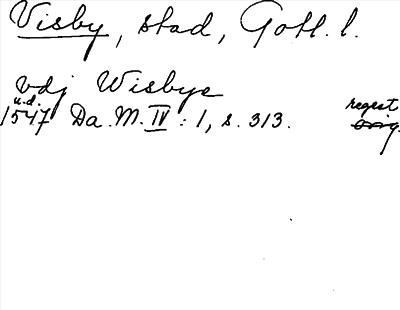 Visby, stad, Gotl. l.
vdj Wisbye
u.d. regest
1547 Da. M. IV : 1, s. 313. orig.